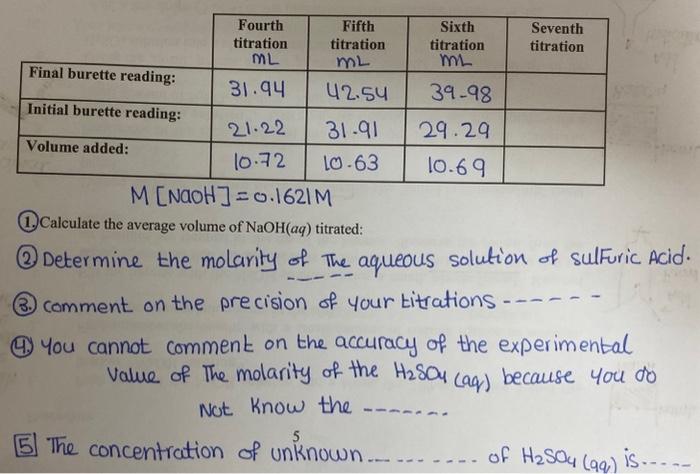 Fourth titration mL Fifth titration mL Sixth titration mL Seventh titration
Final burette reading: 31.94 42.54 39.98
Initial burette reading: 21.22 31.91 29.29
Volume added: 10.72 10.63 10.69
M [NaOH] = 0.1621M
1. Calculate the average volume of NaOH(aq) titrated:
2 Determine the molarity of The aqueous solution of sulfuric Acid.
3. comment on the precision of your titrations ------
4. You cannot comment on the accuracy of the experimental
value of The molarity of the H2SO4 (aq) because you do
Not know the -------
5
5 The concentration of unknown ---------- of H2SO4 (aq) is -----